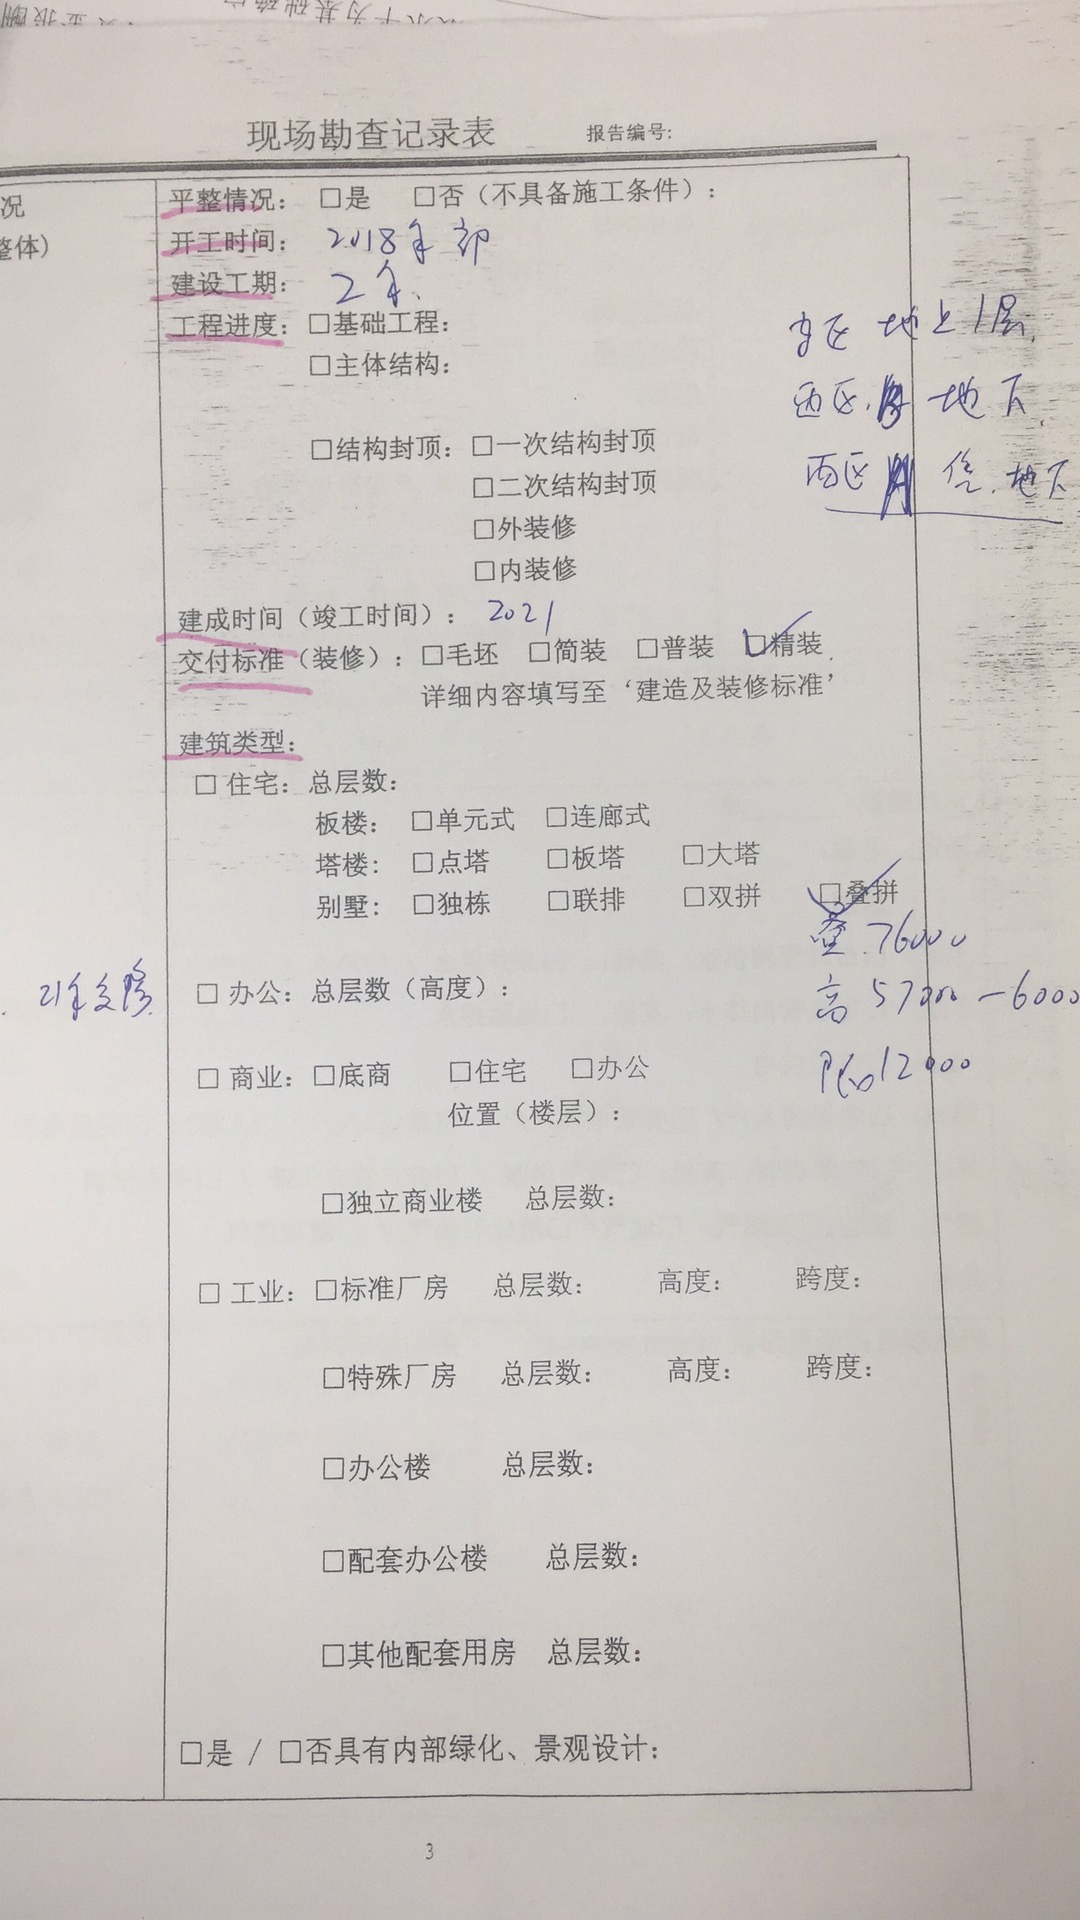 现场勘查记录表 报告编号:
况
整体)
平整情况: □是 □否(不具备施工条件):
开工时间: 2018年
建设工期: 2年.
工程进度: □基础工程:
地上1层
□主体结构:
西区 地下
□结构封顶: □一次结构封顶
□二次结构封顶
西区 地下
□外装修
□内装修
建成时间(竣工时间): 2021
交付标准(装修): □毛坯 □简装 □普装 □精装
详细内容填写至‘建造及装修标准’
建筑类型:
□ 住宅: 总层数:
板楼: □单元式 □连廊式
塔楼: □点塔 □板塔 □大塔
别墅: □独栋 □联排 □双拼 □叠拼
叠 76000
21年交房 □ 办公: 总层数(高度):
高 57000-6000
□ 商业: □底商 □住宅 □办公
12000
位置(楼层):
□独立商业楼 总层数:
□ 工业: □标准厂房 总层数: 高度: 跨度:
□特殊厂房 总层数: 高度: 跨度:
□办公楼 总层数:
□配套办公楼 总层数:
□其他配套用房 总层数:
□是 / □否具有内部绿化、景观设计:
3